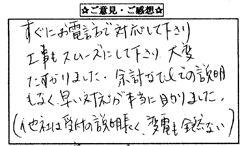 ☆ご意見・ご感想☆
すぐにお電話で対応して下さり
工事もスムーズにして下さり、大変
たすかりました。余計な の説明
もなく、早い対応が本当に助かりました。
(他社は受付の説明長く、変電も全然ない)